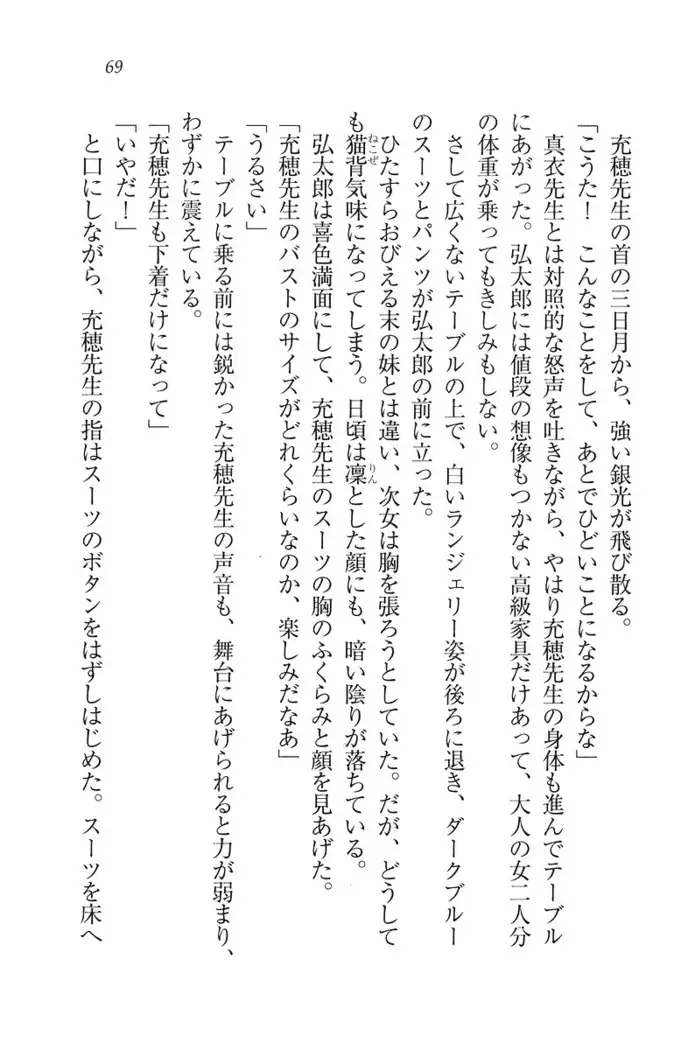 69
充穂先生の首の三日月から、強い銀光が飛び散る。
「こうた!　こんなことをして、あとでひどいことになるからな」
真衣先生とは対照的な怒声を吐きながら、やはり充穂先生の身体も進んでテーブル
にあがった。弘太郎には値段の想像もつかない高級家具だけあって、大人の女二人分
の体重が乗ってもきしみもしない。
さして広くないテーブルの上で、白いランジェリー姿が後ろに退き、ダークブルー
のスーツとパンツが弘太郎の前に立った。
ひたすらおびえる末の妹とは違い、次女は胸を張ろうとしていた。だが、どうして
も猫背気味になってしまう。日頃は凜とした顔にも、暗い陰りが落ちている。
弘太郎は喜色満面にして、充穂先生のスーツの胸のふくらみと顔を見あげた。
「充穂先生のバストのサイズがどれくらいなのか、楽しみだなあ」
「うるさい」
テーブルに乗る前には鋭かった充穂先生の声音も、舞台にあげられると力が弱まり、
わずかに震えている。
「充穂先生も下着だけになって」
「いやだ!」
と口にしながら、充穂先生の指はスーツのボタンをはずしはじめた。スーツを床へ